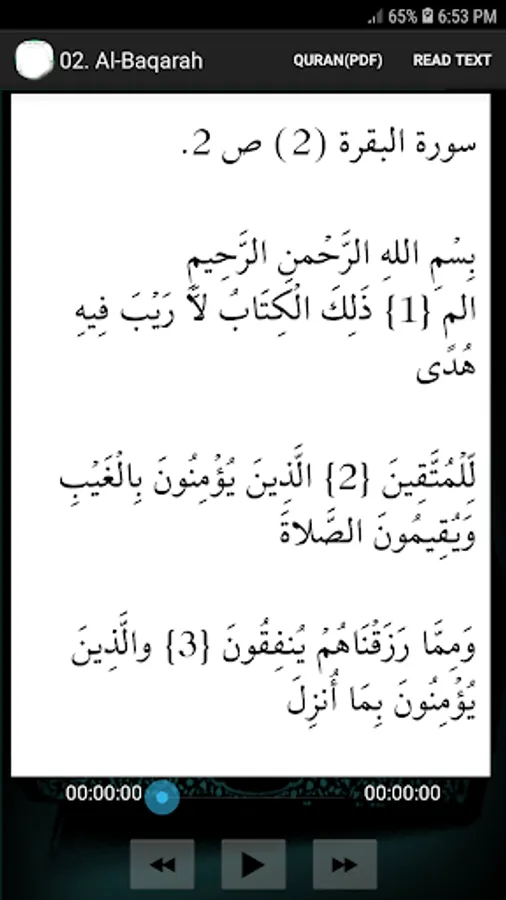 65% 6:53 PM
02. Al-Baqarah QURAN(PDF) READ TEXT
سورة البقرة (2) ص 2.
بِسْمِ اللهِ الرَّحْمنِ الرَّحِيمِ
الم {1} ذَلِكَ الْكِتَابُ لاَ رَيْبَ فِيهِ
هُدًى
لِّلْمُتَّقِينَ {2} الَّذِينَ يُؤْمِنُونَ بِالْغَيْبِ
وَيُقِيمُونَ الصَّلاةَ
وَمِمَّا رَزَقْنَاهُمْ يُنفِقُونَ {3} والَّذِينَ
يُؤْمِنُونَ بِمَا أُنزِلَ
00:00:00 00:00:00